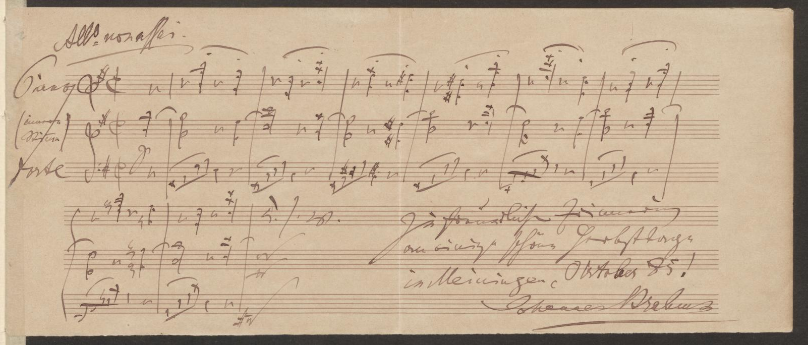 Allo. non assai.
Piano
forte
u. s. w.
Zur freundlichen Erinnerung
an einige schöne Herbsttage
in Meiningen, Oktober 85!
Johannes Brahms